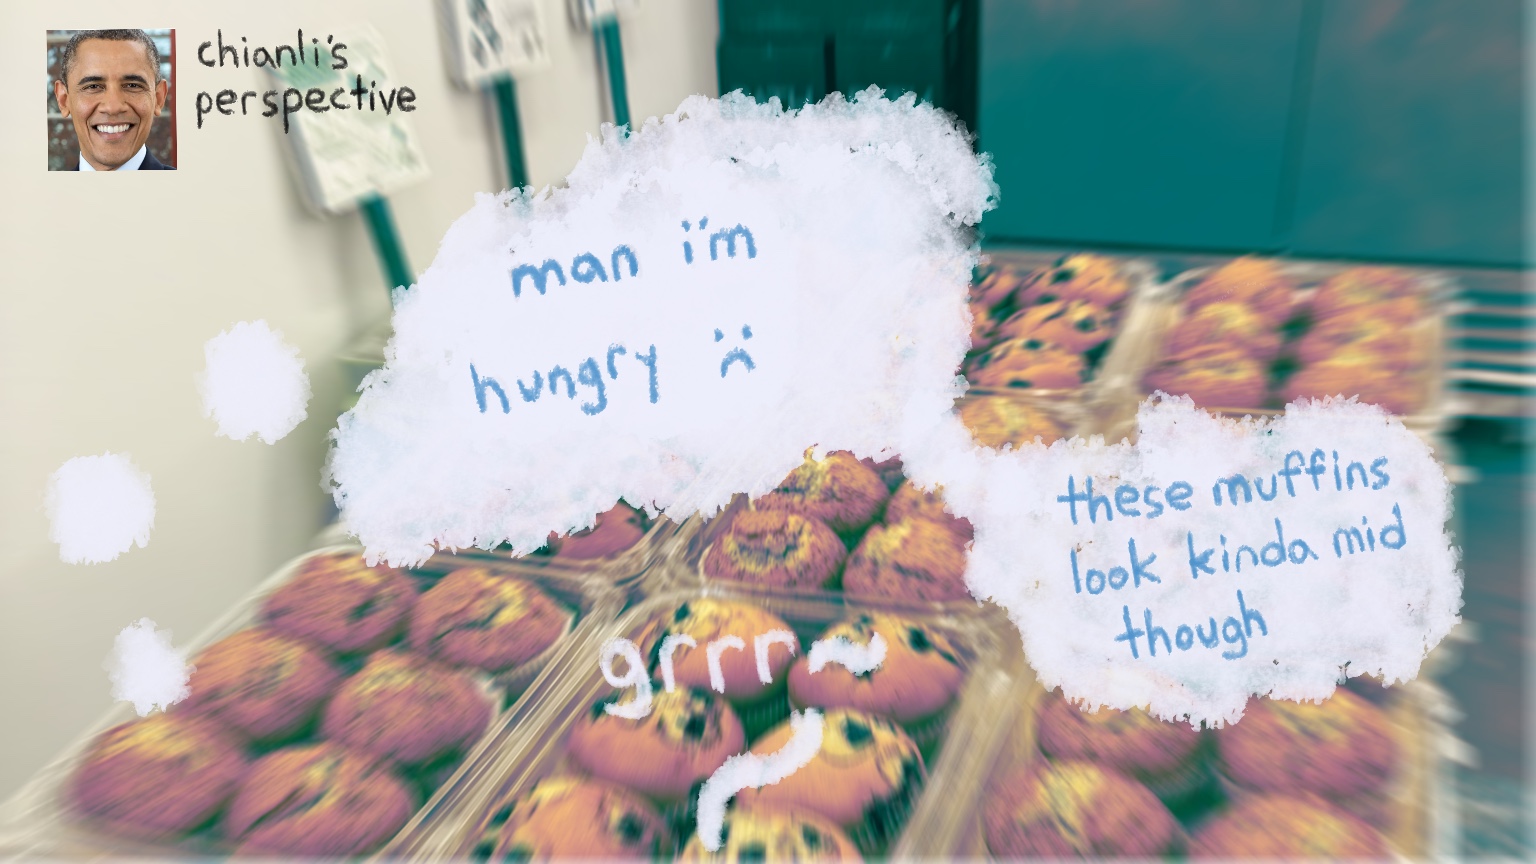 chianli's
perspective
man i'm
hungry :(
these muffins
look kinda mid
though
grrr~